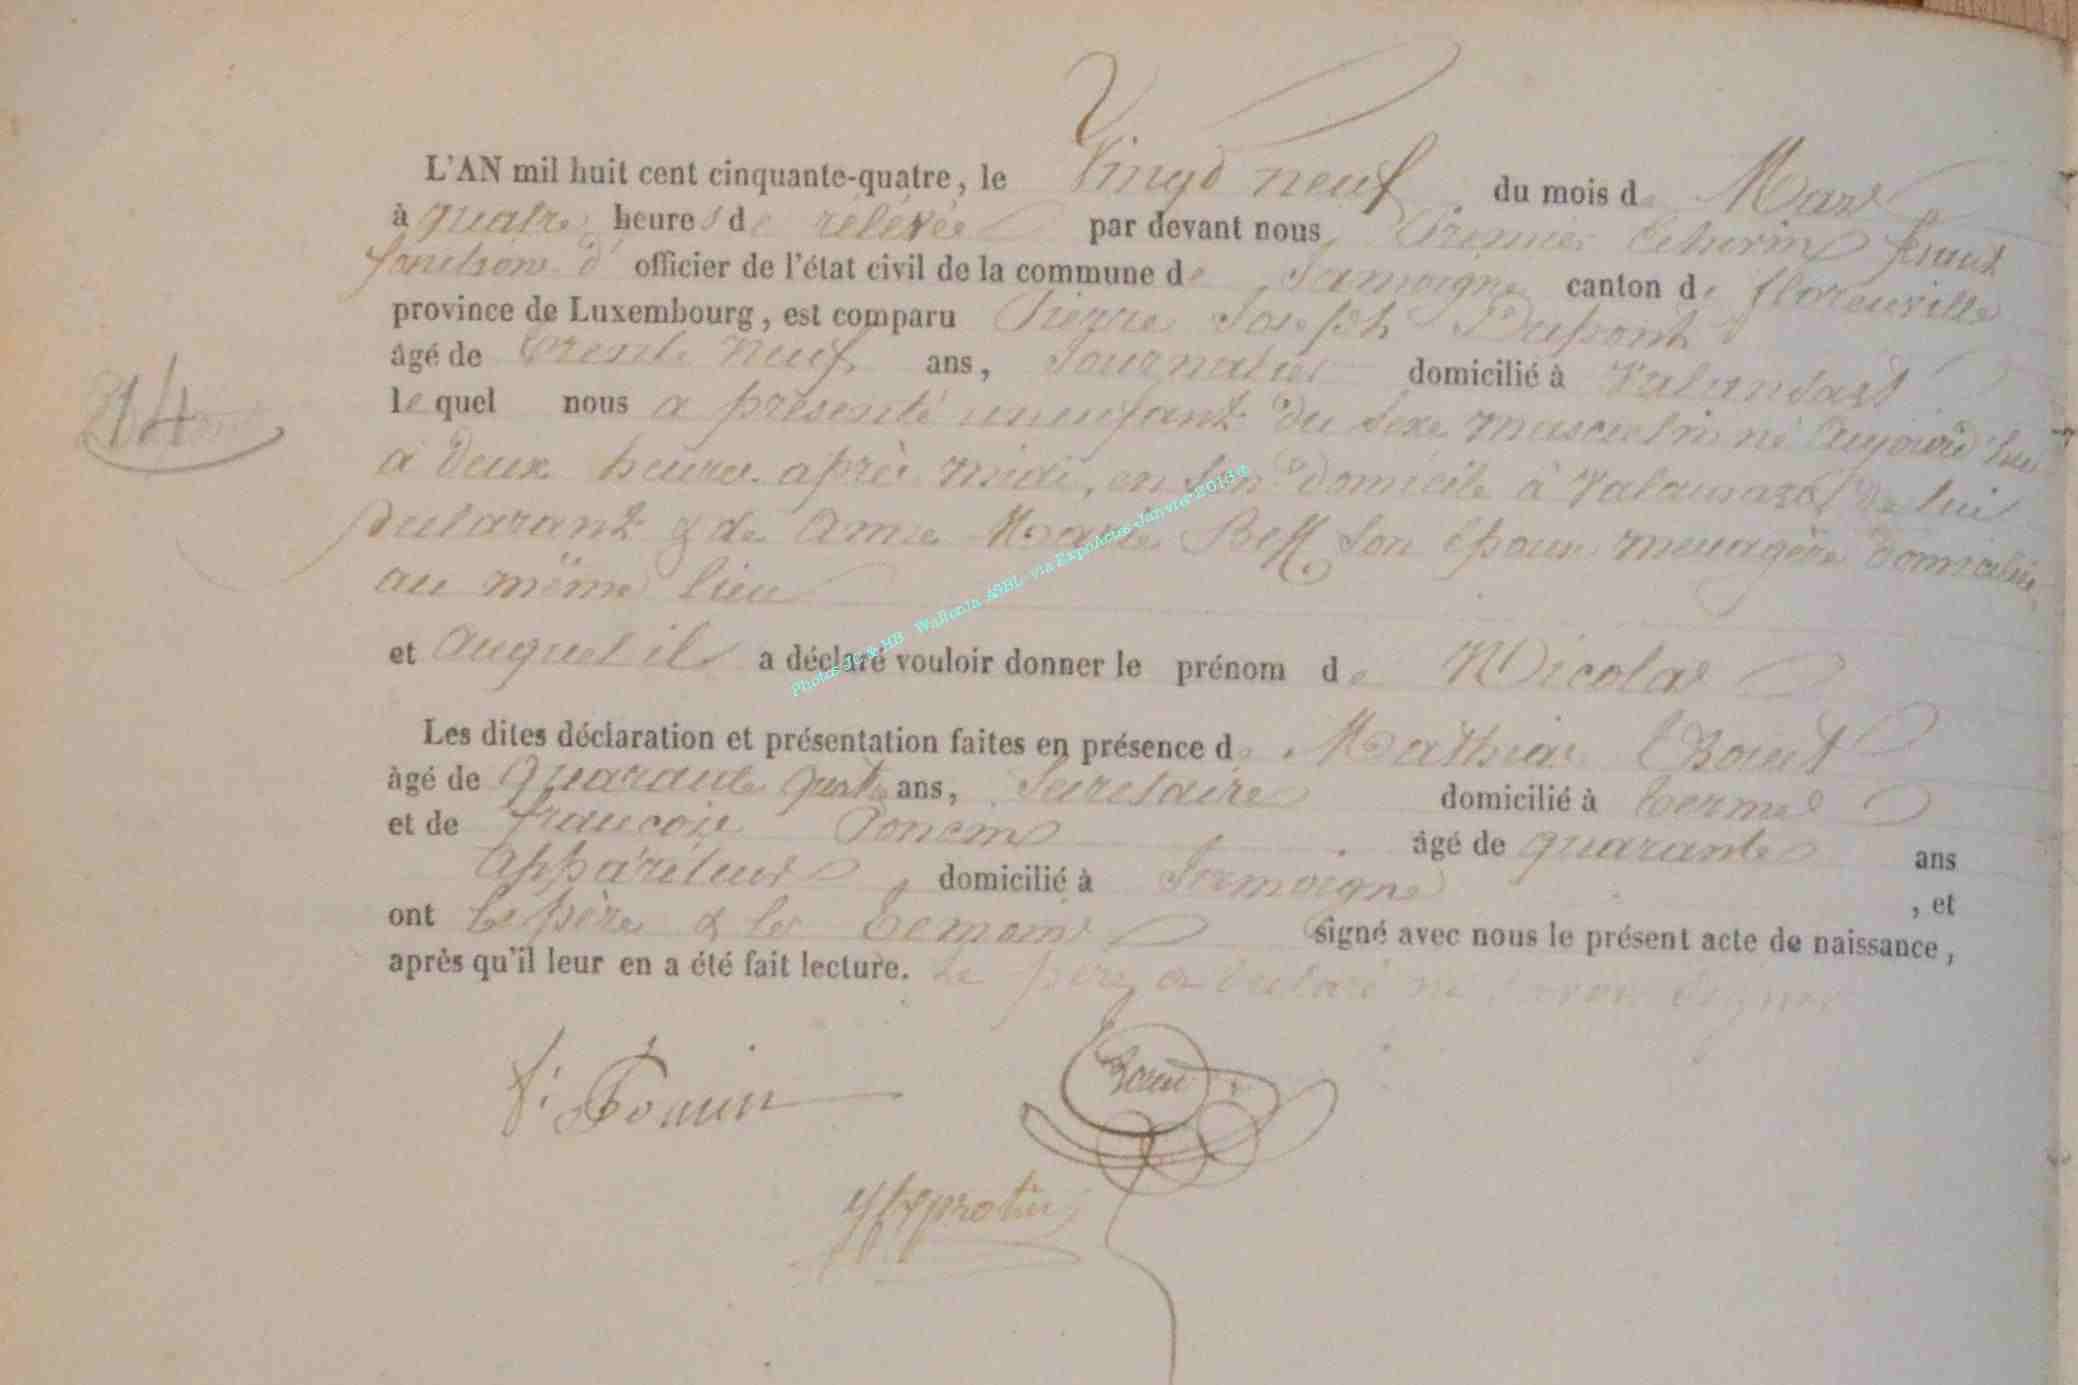 L'AN mil huit cent cinquante-quatre, le Vingt neuf du mois de Mars
à quatre heures de relevée par devant nous, fesant
fonctions d' officier de l'état civil de la commune de Jamoigne canton de florenville
province de Luxembourg, est comparu Pierre Joseph Dupont
âgé de trente neuf ans, Journalier domicilié à Valansart
14
le quel nous a présenté un enfant du sexe masculin né aujourd'hui
a deux heures après midi, en son domicile à Valansart de lui
déclarant & de Anne Marie son épouse menagère domiciliée
au même lieu
et auquel il a déclaré vouloir donner le prénom de Nicolas
Les dites déclaration et présentation faites en présence de Mathias
âgé de quarante quatre ans, Secretaire domicilié à termes
et de francois Ponein âgé de quarante ans
appariteur, domicilié à Jamoigne, et
ont le père & les temoins signé avec nous le présent acte de naissance,
après qu'il leur en a été fait lecture. Le père a declaré ne savoir signer
Photos JC & HB - Wallonia ASBL via ExpoActes Janvier 2013